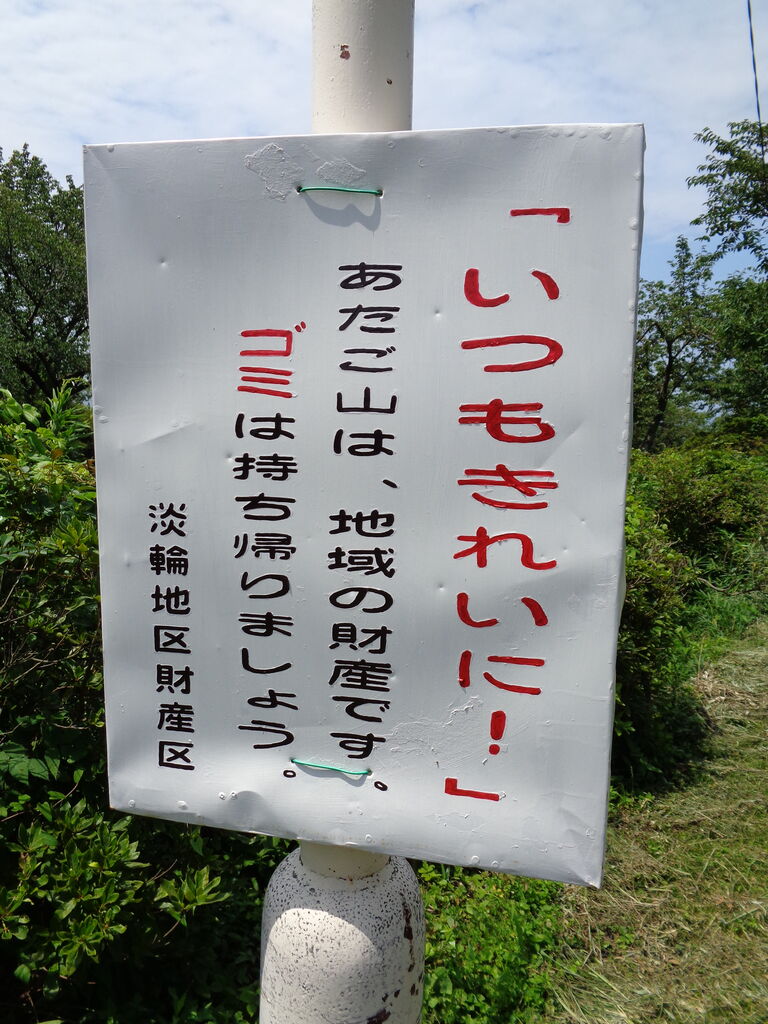 「いつもきれいに！」
あたご山は、地域の財産です。
ゴミは持ち帰りましょう。
淡輪地区財産区